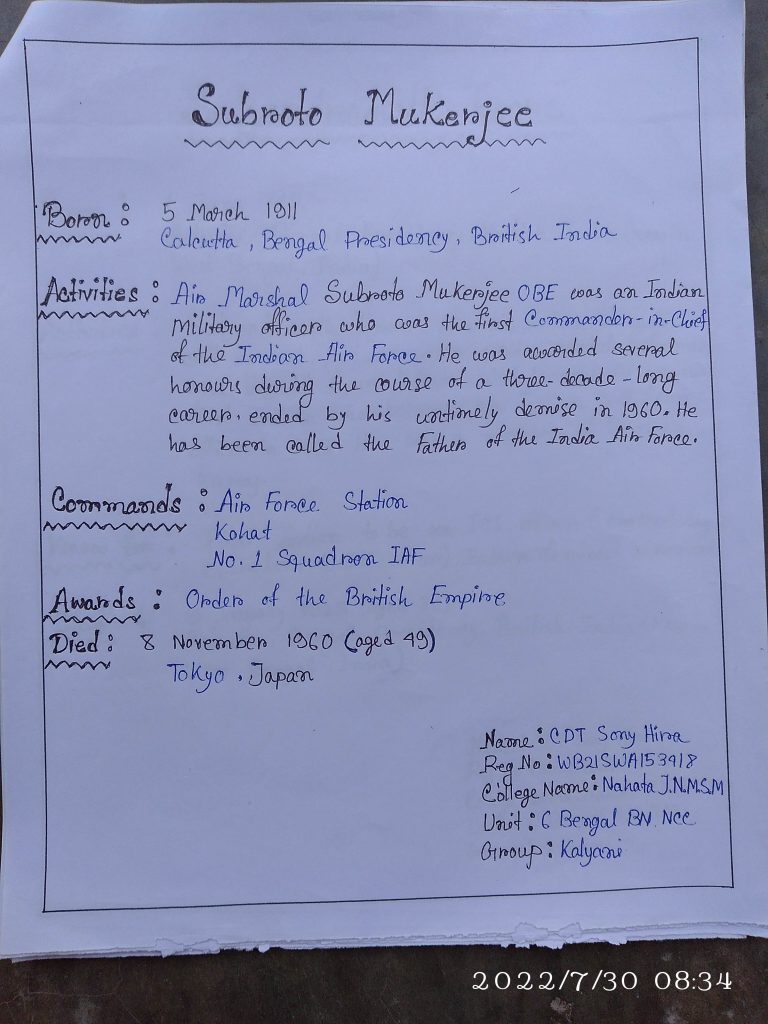 Subroto Mukerjee
Born : 5 March 1911
Calcutta, Bengal Presidency, British India
Activities : Air Marshal Subroto Mukerjee OBE was an Indian
military officer who was the first Commander-in-Chief
of the Indian Air Force. He was awarded several
honours during the course of a three-decade-long
career. ended by his untimely demise in 1960. He
has been called the Father of the India Air Force.
Commands : Air Force Station
Kohat
No. 1 Squadron IAF
Awards : Order of the British Empire
Died : 8 November 1960 (aged 49)
Tokyo, Japan
Name : CDT Sony Hira
Reg No : WB21SWA153418
College Name : Nahata J.N.M.S.M
Unit : 6 Bengal BN. NCC
Group : Kalyani
2022/7/30 08:34